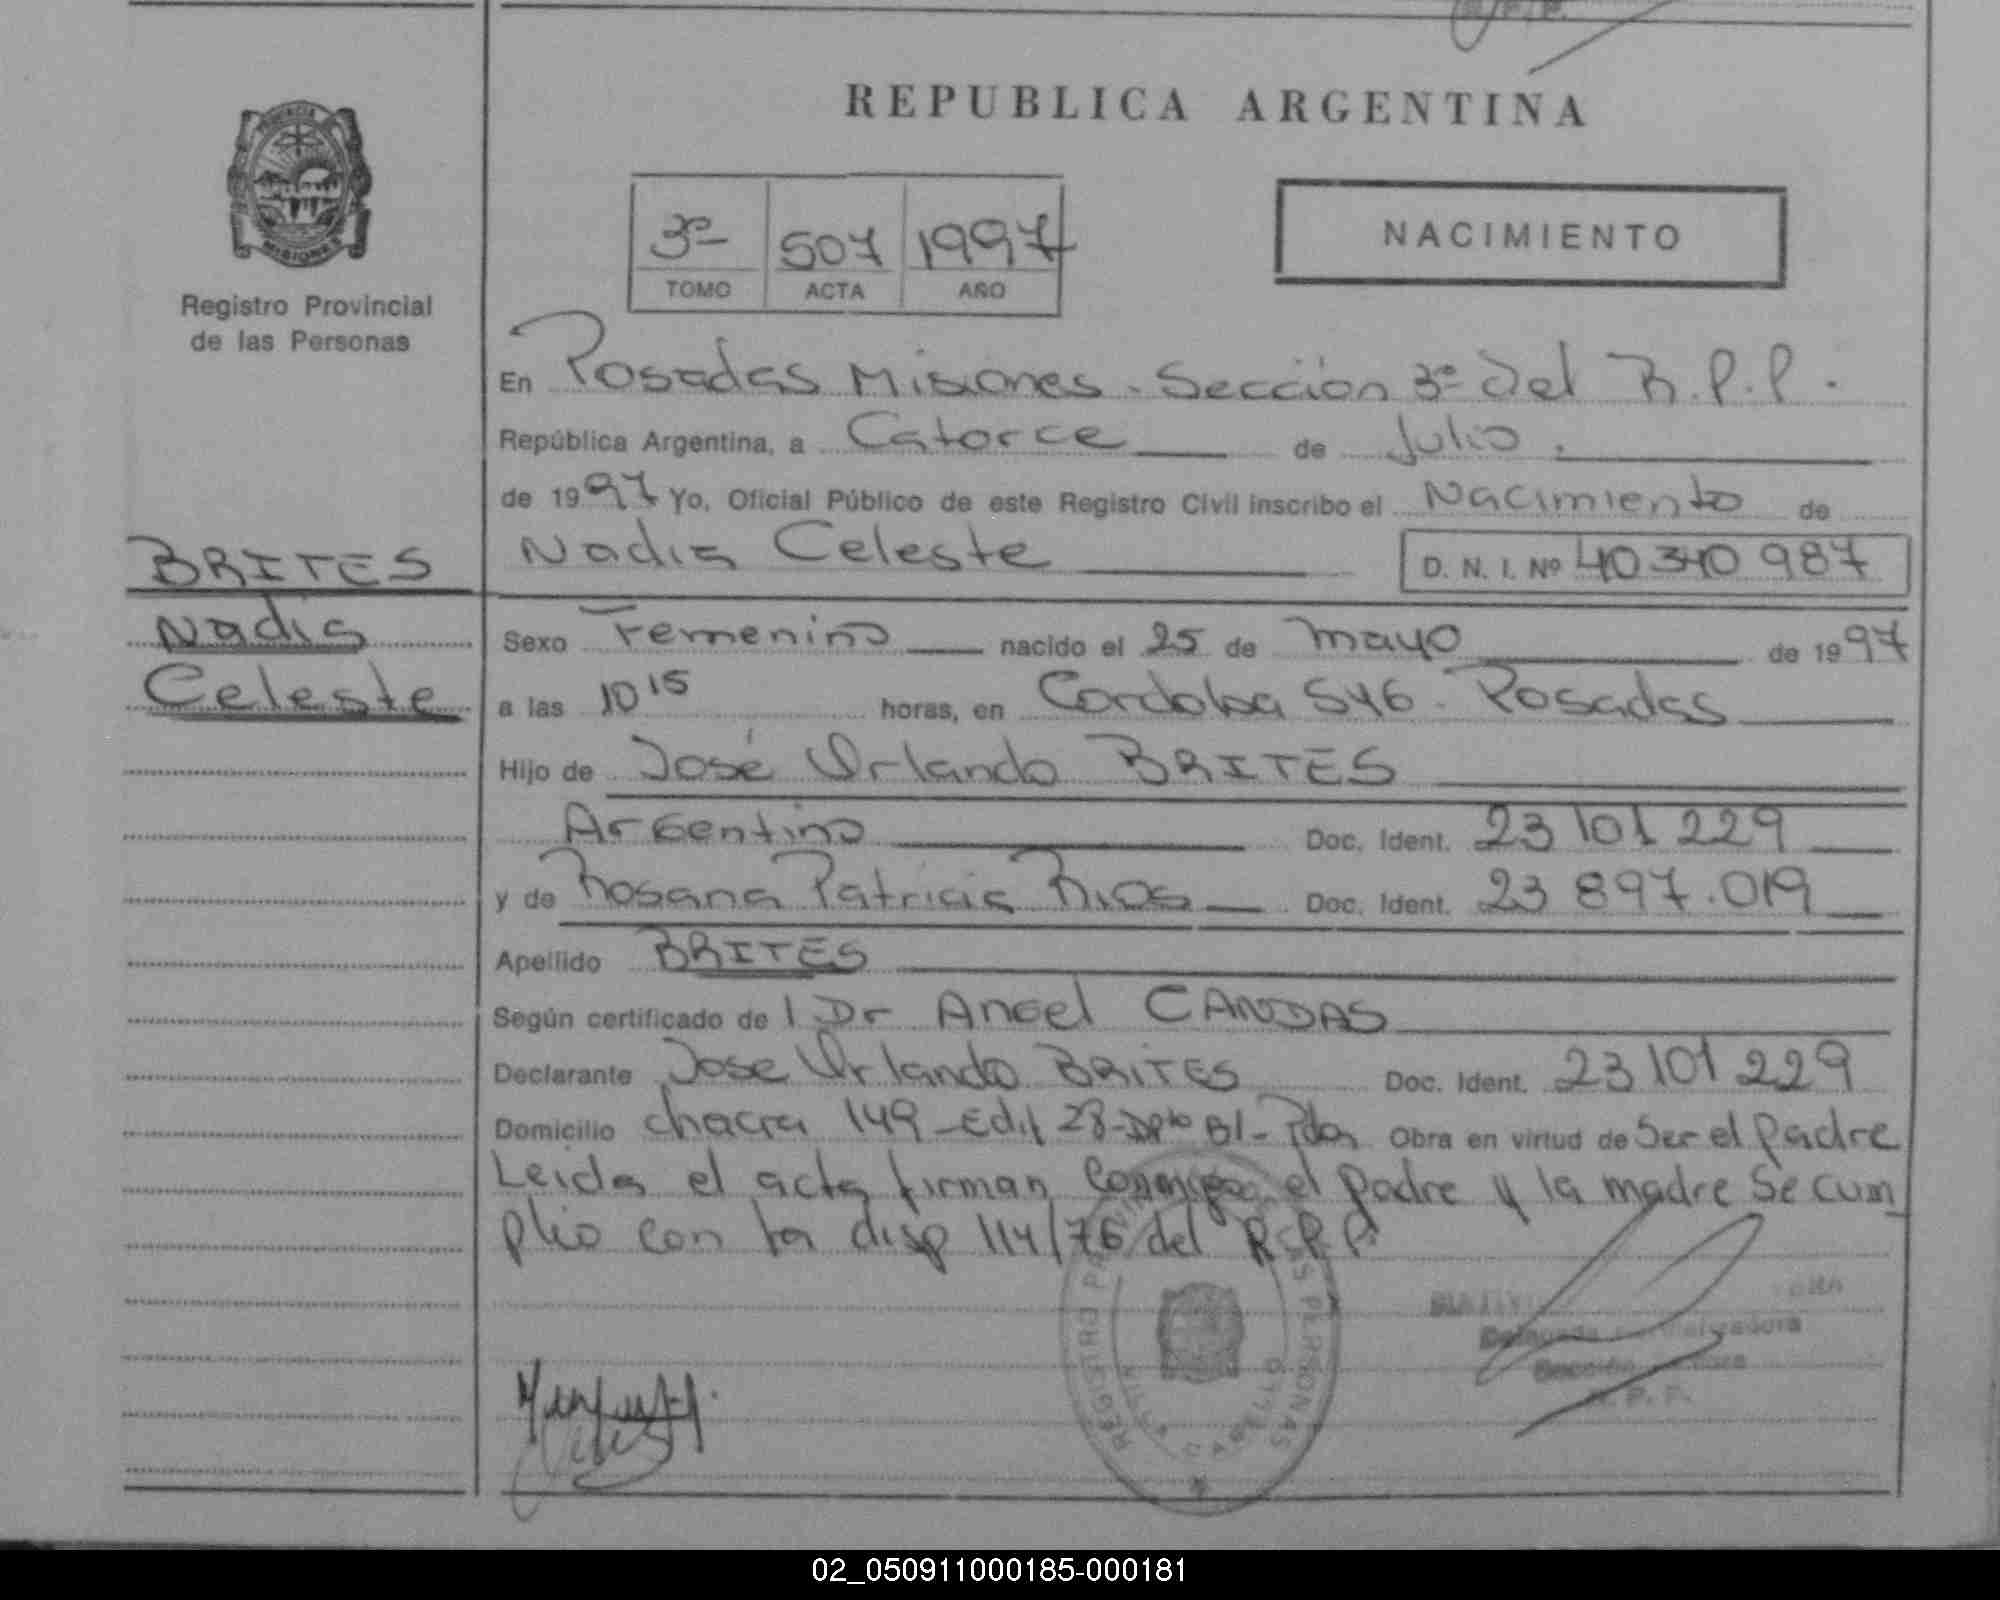 REPUBLICA ARGENTINA
PROVINCIA
MISIONES
Registro Provincial
de las Personas
3º 507 1997
TOMO ACTA AÑO
NACIMIENTO
En Posadas Misiones - Sección 3º del R.P.P.
República Argentina, a Catorce de Julio.
de 1997 Yo, Oficial Público de este Registro Civil inscribo el Nacimiento de
BRITES
Nadia Celeste
D. N. I. Nº 40 340 987
Nadia
Celeste
Sexo Femenino nacido el 25 de mayo de 1997
a las 10 15 horas, en Cordoba 546 - Posadas
Hijo de José Orlando BRITES
Argentino Doc. Ident. 23 101 229
y de Rosana Patricia Rios Doc. Ident. 23 897.019
Apellido BRITES
Según certificado de l Dr Angel CANDAS
Declarante Jose Orlando BRITES Doc. Ident. 23 101 229
Domicilio chacra 149 - Edif 28 - Dpto B1 - Pdas Obra en virtud de Ser el padre
Leida el acta firman conmigo el padre y la madre Se cum_
plio con la disp 114/76 del R.P.P.
REGISTRO PROVINCIAL DE LAS PERSONAS
Sección
R. P. P.
02_050911000185-000181